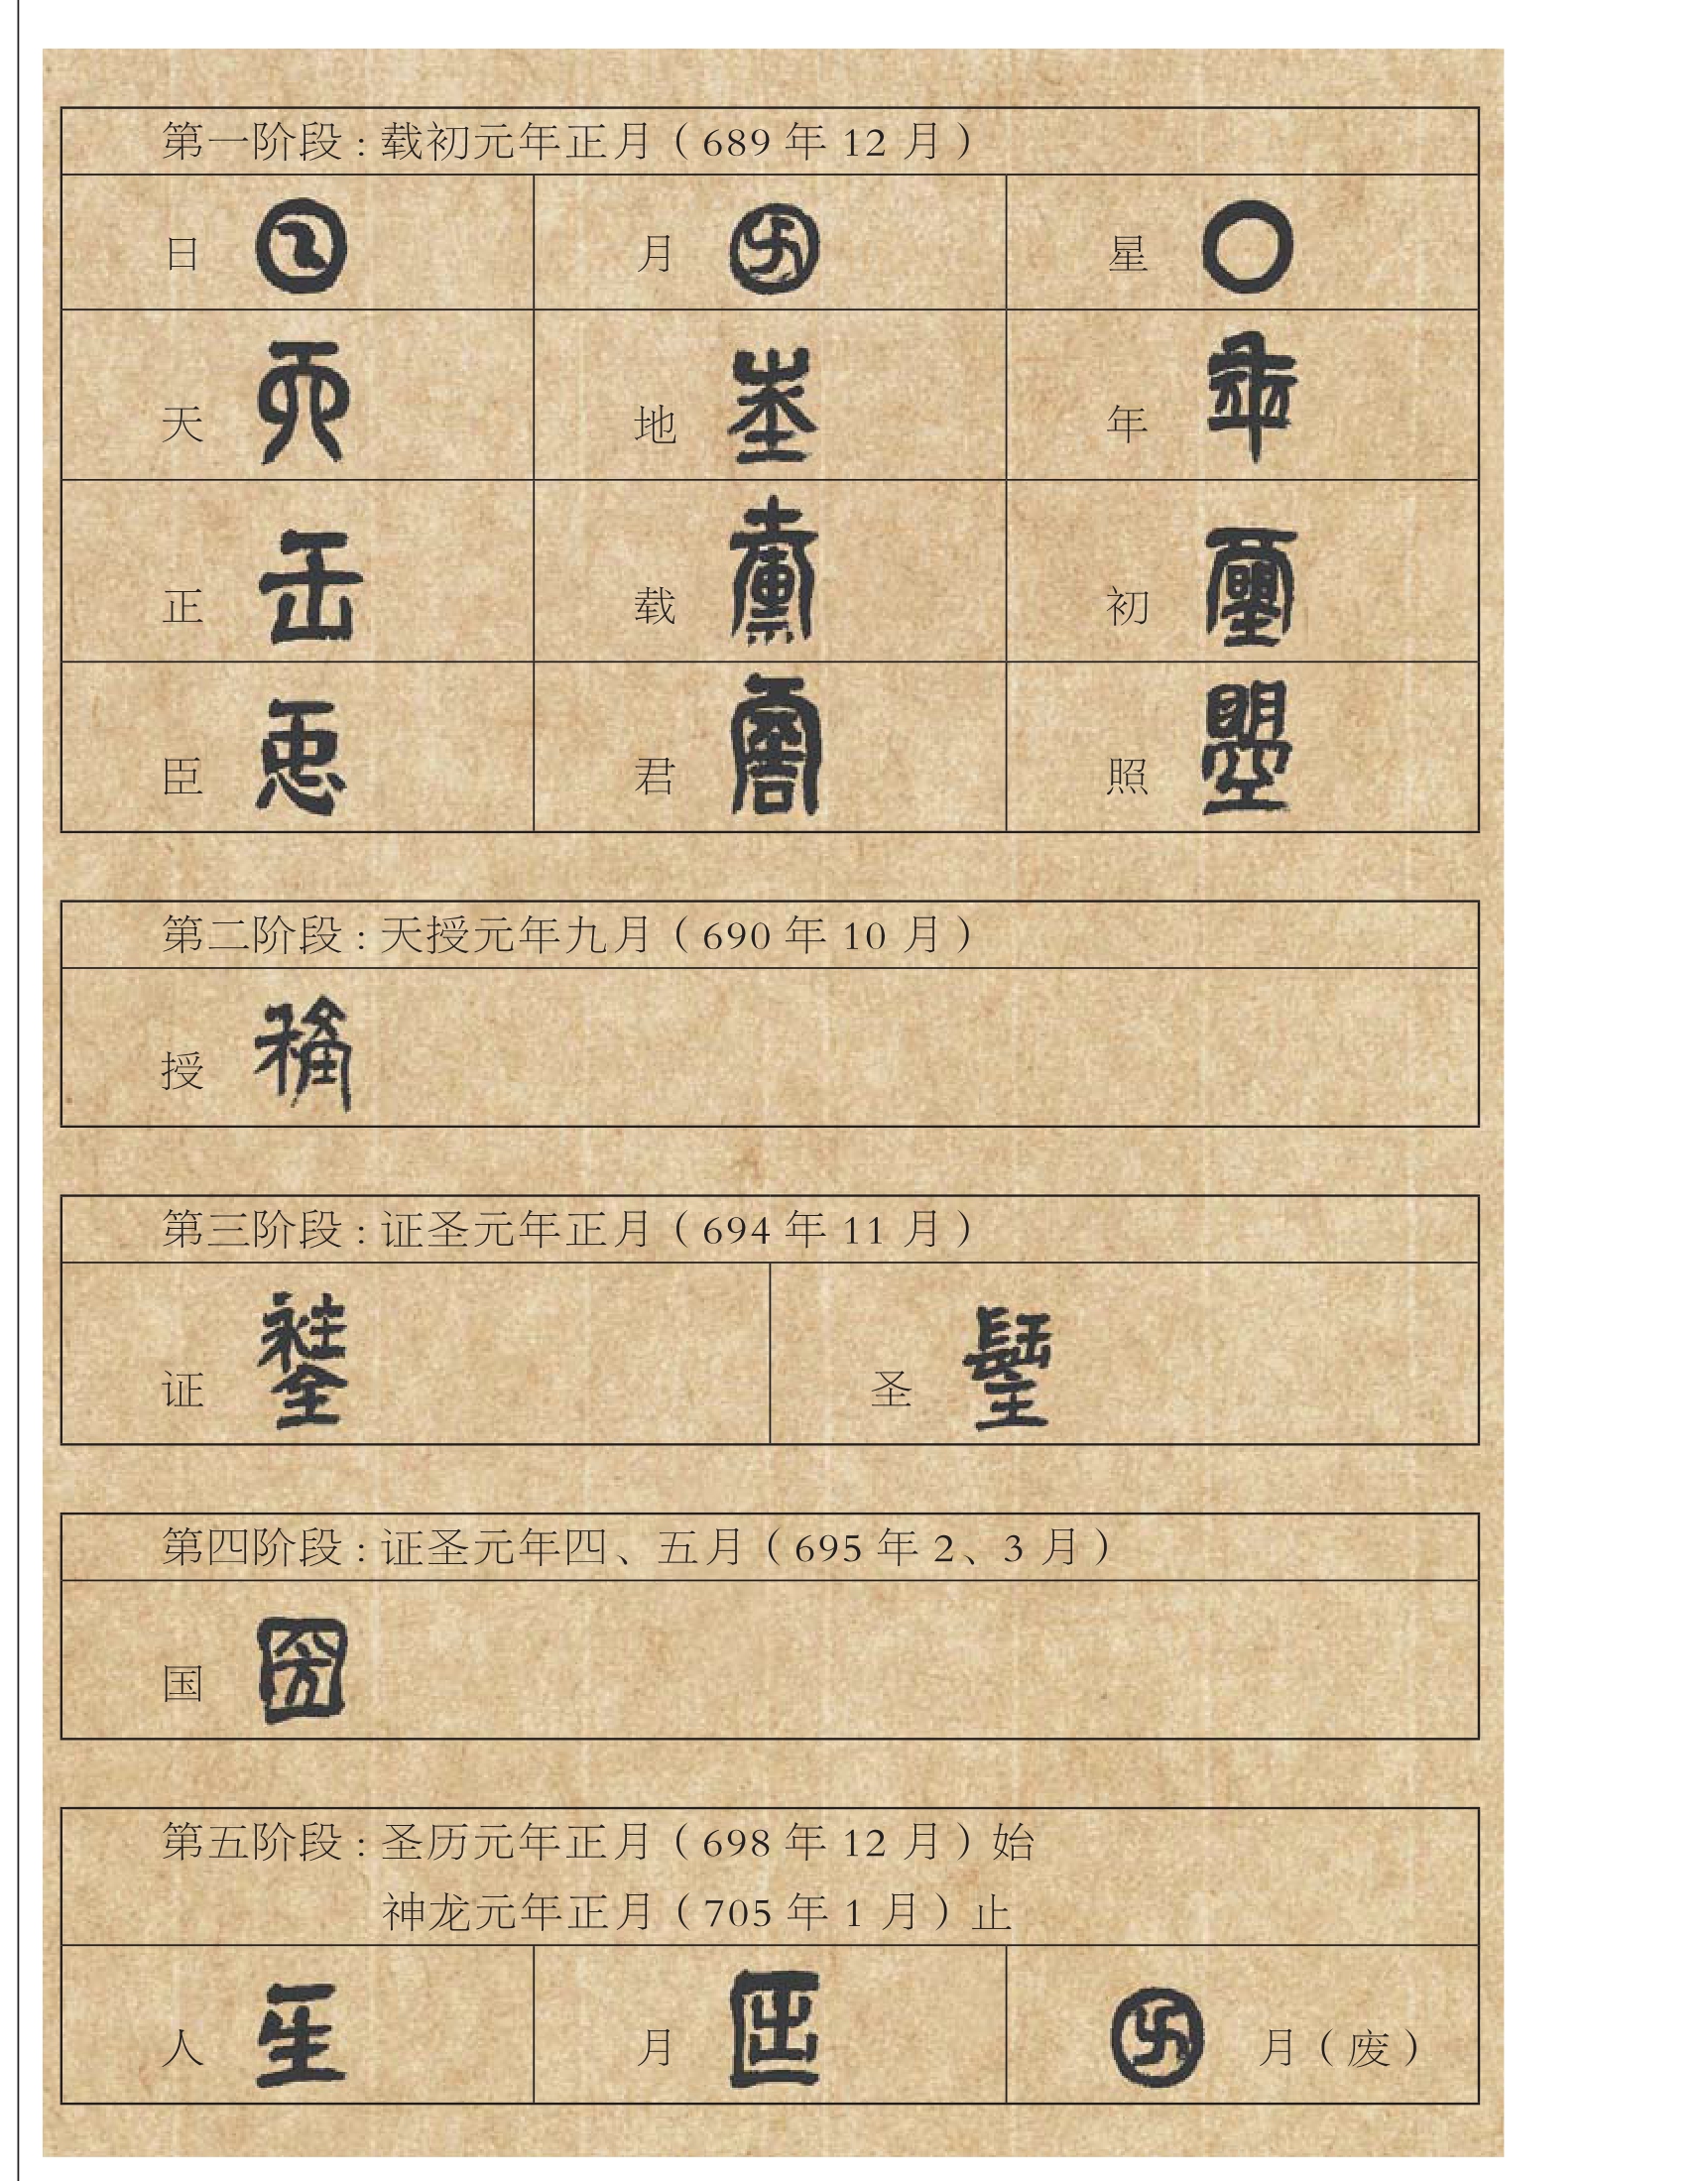 第一阶段：载初元年正月（689 年 12 月）
日 𡆠 月 星 〇
天 𠀑 地 埊 年 𠡦
正 𠙺 载 𡕀 初 𡔈
臣 𢘑 君 𠺞 照 曌
第二阶段：天授元年九月（690 年 10 月）
授 𥠢
第三阶段：证圣元年正月（694 年 11 月）
证 𨭻 圣 𨲢
第四阶段：证圣元年四、五月（695 年 2、3 月）
国 圀
第五阶段：圣历元年正月（698 年 12 月）始
神龙元年正月（705 年 1 月）止
人 𤯔 月 囝 月（废）